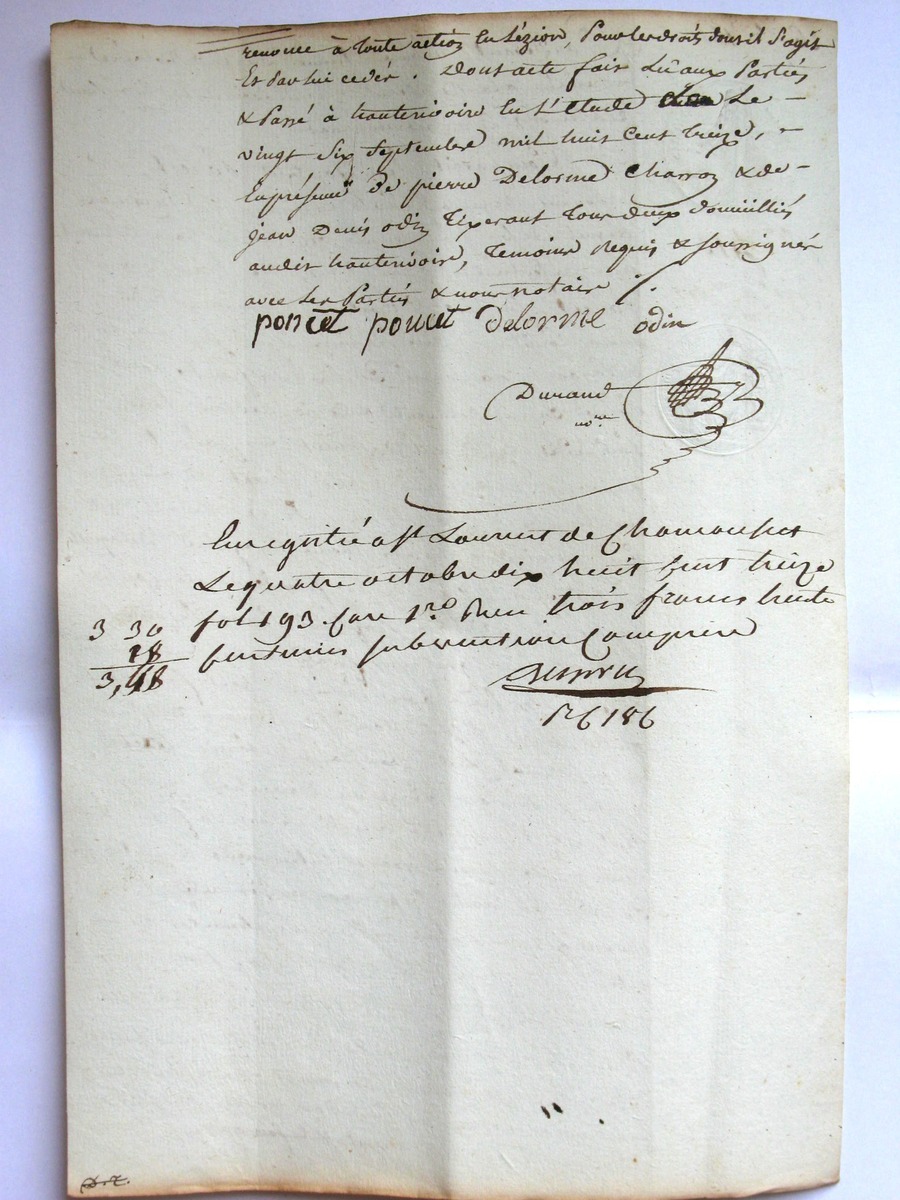 renonce à toute action en lézion, pour les droits dont il s'agit
et par lui cedér. Dont acte fait lû aux parties
& passé à hauterivoire en l'étude le -
vingt six septembre mil huit cent treize, -
en présence de pierre Delorme charron & de -
jean Denis odin tixerant tous deux domiciliés
audit hauterivoire, temoins requis & soussignés
avec les parties & nous notaire /.
poncet poncet Delorme odin
Durand
nore.
Enregistré a st Laurent de Chamousset
Le quatre octobre dix huit cent treize
fol 193. case 1re Reçu trois francs trente
centimes subvention comprise
3 30
18
3,48
D.Z.